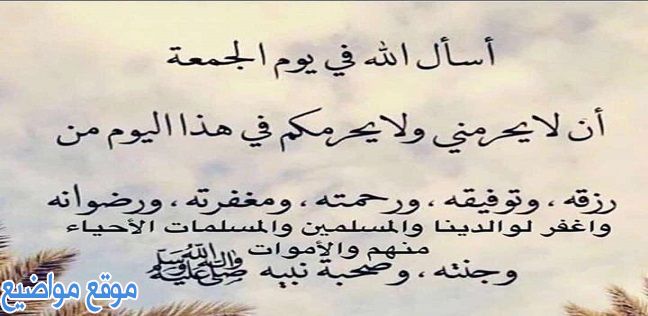 أسأل الله في يوم الجمعة
أن لا يحرمني ولا يحرمكم في هذا اليوم من
رزقه ، وتوفيقه ، ورحمته ، ومغفرته ، ورضوانه
واغفر لوالدينا والمسلمين والمسلمات الأحياء
منهم والأموات
وجنته ، وصحبة نبيه ﷺ
موقع مواضيع